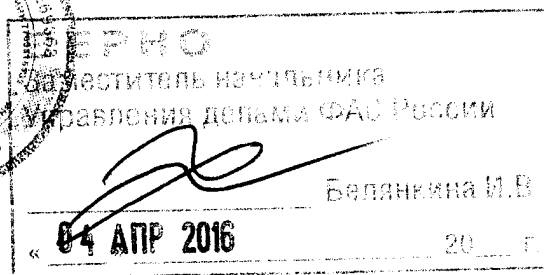 ВЕРНО
Заместитель начальника
Управления делами ФАС России
Белянкина И.В
« 04 АПР 2016 20 г.